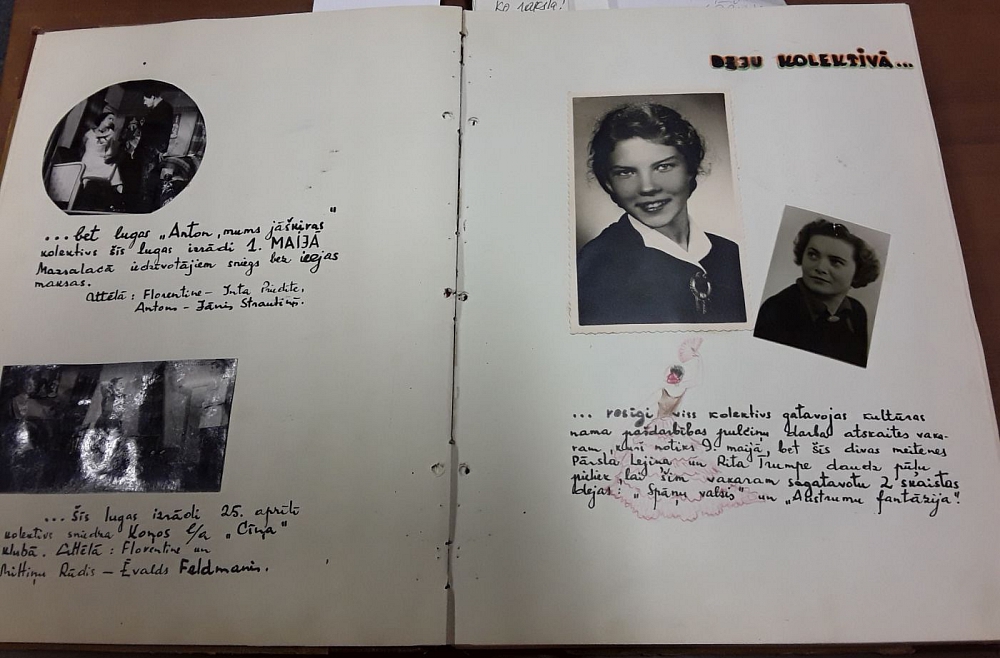 ko raksta!
... bet lugas „Anton, mums jāšķiras"
kolektīvs šīs lugas izrādi 1. MAIJĀ
Mazsalacā iedzīvotājiem sniegs bez ieejas
maksas.
Attēlā: Florentīne – Inta Priedīte,
Antons – Jānis Strautiņš.
... šīs lugas izrādi 25. aprīlī
kolektīvs sniedza Koņos l/a „Cīņa"
klubā. Attēlā: Florentīne un
Mittiņu Rūdis – Ēvalds Feldmanis.
DEJU KOLEKTĪVĀ...
... rosīgi viss kolektīvs gatavojas kultūras
nama pašdarbības pulciņu darba atskaites vaka-
ram, kurš notiks 9. maijā, bet šīs divas meitenes
Pārsla Lejiņa un Rita Trumpe daudz pūļu
pieliek, lai šim vakaram sagatavotu 2 skaistas
dejas: „Spāņu valsis" un „Austrumu fantāzija".